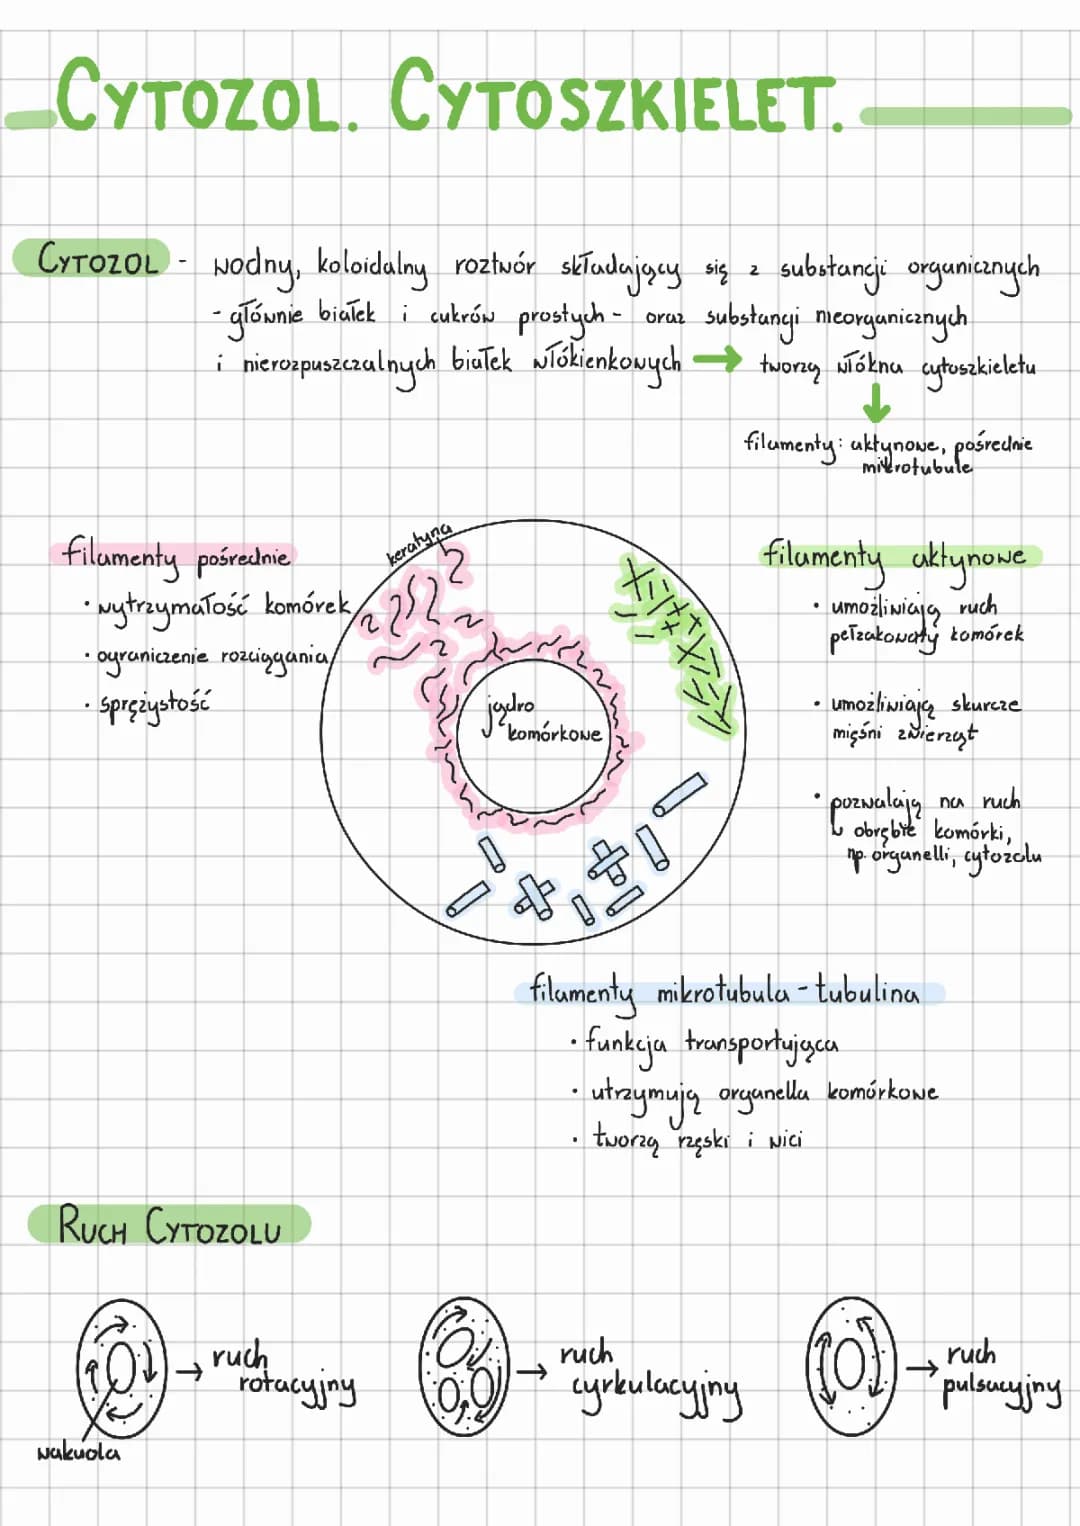 CYTOZOL. CYTOSZKIELET.
CYTOZOL - wodny, koloidalny roztwór składający się z substancji organicznych
- głównie białek i cukrów prostych - oraz substancji nieorganicznych
i nierozpuszczalnych białek włókienkowych → tworzą włókna cytoszkieletu
↓
filamenty: aktynowe, pośrednie
mikrotubule
filamenty pośrednie
• wytrzymałość komórek
• ograniczenie rozciągania
• sprężystość
keratyna
jądro
komórkowe
filamenty aktynowe
• umożliwiają ruch
pełzakowaty komórek
• umożliwiają skurcze
mięśni zwierząt
• pozwalają na ruch
w obrębie komórki,
np. organelli, cytozolu
filamenty mikrotubula - tubulina
• funkcja transportująca
• utrzymują organella komórkowe
• tworzą rzęski i nici
RUCH CYTOZOLU
→ ruch
rotacyjny
wakuola
→ ruch
cyrkulacyjny
→ ruch
pulsacyjny